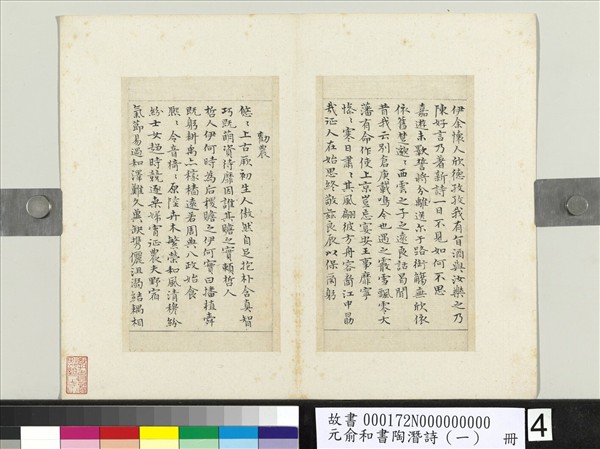 伊余懷人欣德孜孜我有旨酒與汝樂之乃
陳好言乃著新詩一日不見如何不思
嘉遊未斁誓將分離送尔于路銜觴無欣依
依舊楚邈〻西雲之子之遠良話曷聞
昔我云別倉庚載鳴今也遇之霰雪飄零大
藩有命作使上京豈忘宴安王事靡寧
慘〻寒日肅〻其風翩彼方舟容裔江中勗
哉征人在始思終敬茲良辰以保爾躬
勸農
悠〻上古厥初生人傲然自足抱朴含真智
巧既萌資待靡因誰其贍之實賴哲人
哲人伊何時為后稷贍之伊何實曰播植舜
既躬耕禹亦稼穡遠若周典八政始食
熙〻令音猗〻原陸卉木繁榮和風清穆紛
紛士女趨時競逐桑婦宵征農夫野宿
氣節易過和澤難久冀缺攜儷沮溺結耦相
故書000172N000000000
元俞和書陶潛詩(一) 冊
4